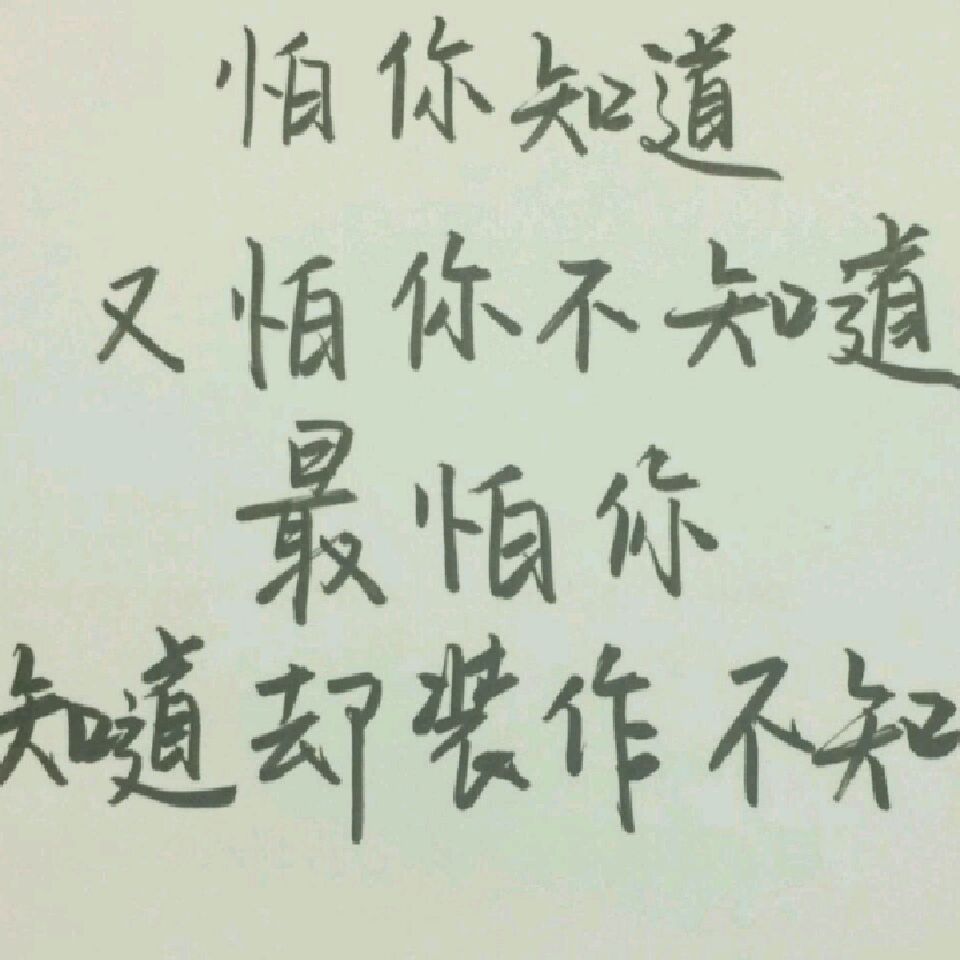 怕你知道
又怕你不知道
最怕你
知道却装作不知